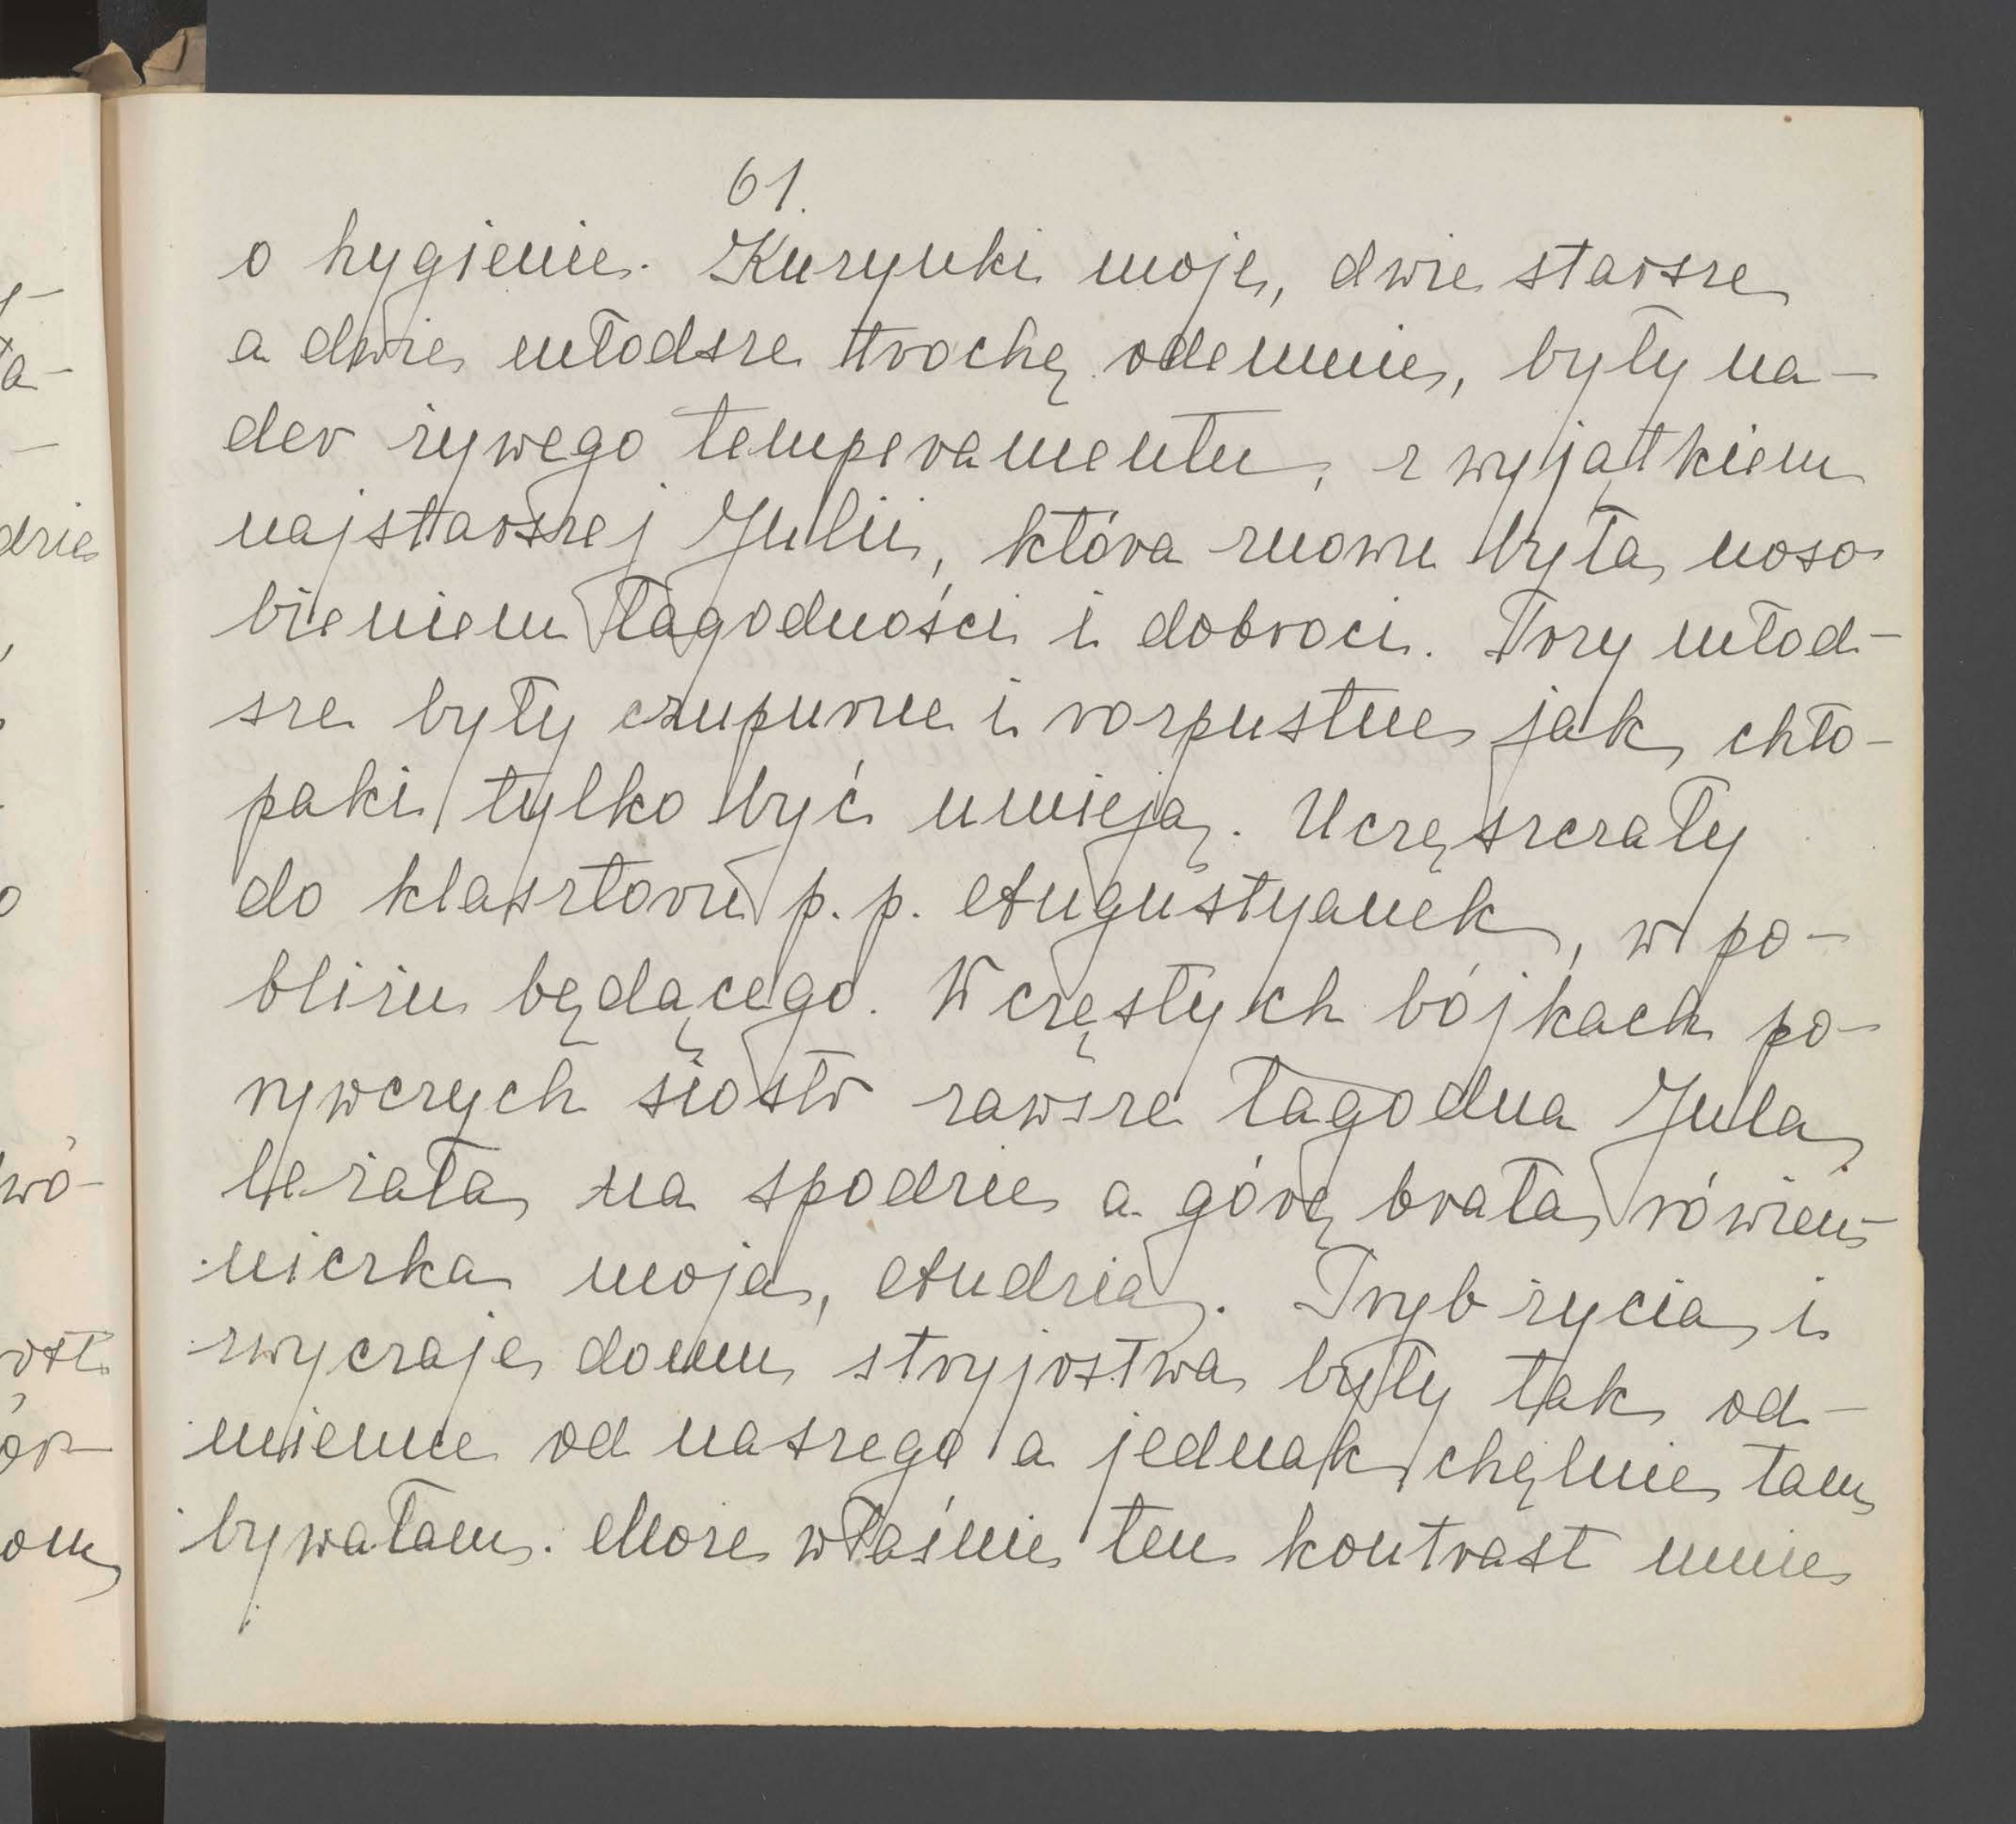 61.
o hygienie. Kuzynki moje, dwie starsze
a dwie młodsze trochę odemnie, były na-
der żywego temperamentu, z wyjątkiem
najstarszej Julii, która znowu była uoso
bieniem łagodności i dobroci. Trzy młod-
sze były czupurne i rozpustne jak chło-
paki tylko być umieją. Uczęszczały
do klasztoru p. p. Augustyanek, w po-
bliżu będącego. W częstych bójkach po-
rywczych sióstr zawsze łagodna Jula
leżała na spodzie a górę brała rówieś-
niczka moja, Andzia. Tryb życia i
zwyczaje domu stryjostwa były tak od-
mienne od naszego a jednak chętnie tam
bywałam. Może właśnie ten kontrast mnie
dzie
wó-
om